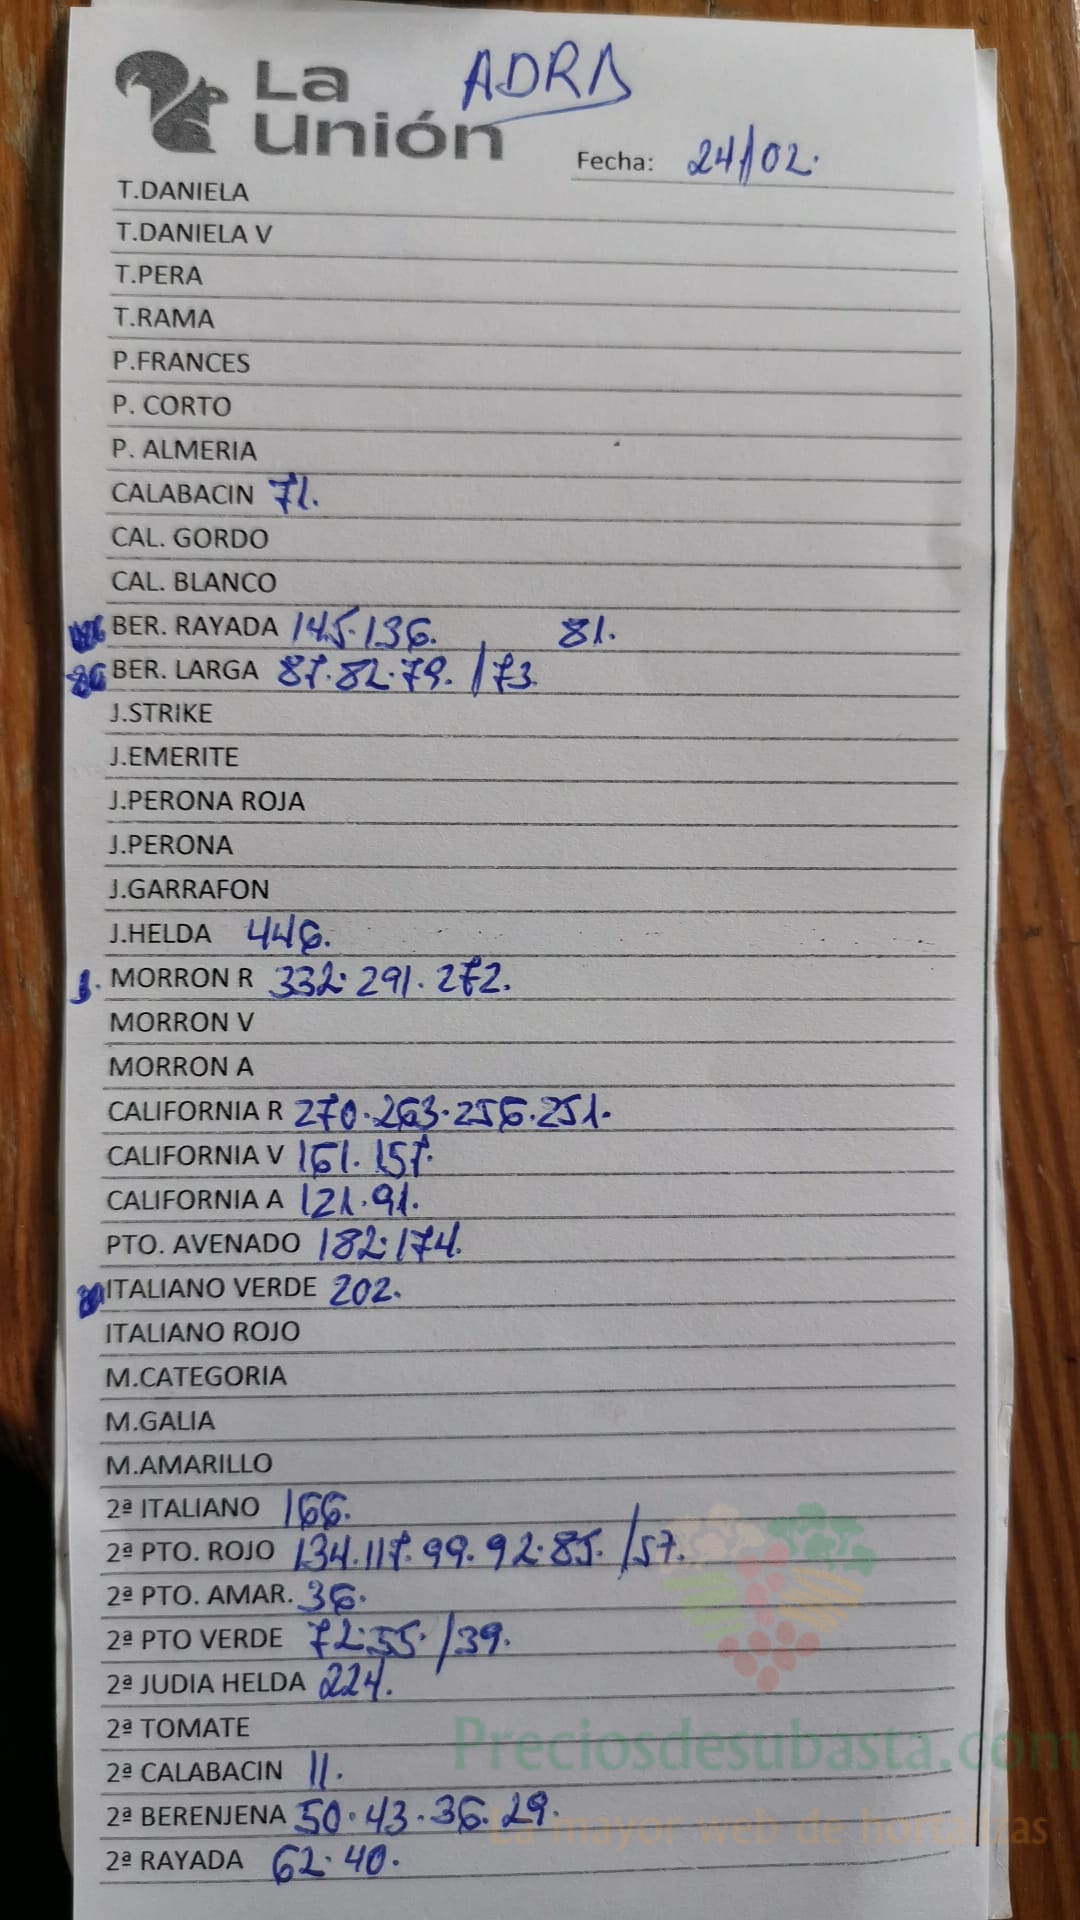 La
Unión
ADRA
Fecha: 24/02.
T.DANIELA
T.DANIELA V
T.PERA
T.RAMA
P.FRANCES
P. CORTO
P. ALMERIA
CALABACIN 71.
CAL. GORDO
CAL. BLANCO
BER. RAYADA 145.136. 81.
BER. LARGA 87.82.79. /73.
J.STRIKE
J.EMERITE
J.PERONA ROJA
J.PERONA
J.GARRAFON
J.HELDA 446.
MORRON R 332.291.272.
MORRON V
MORRON A
CALIFORNIA R 270.263.256.251.
CALIFORNIA V 161.157.
CALIFORNIA A 121.91.
PTO. AVENADO 182.174.
ITALIANO VERDE 202.
ITALIANO ROJO
M.CATEGORIA
M.GALIA
M.AMARILLO
2ª ITALIANO 166.
2ª PTO. ROJO 134.117.99.92.85. /57.
2ª PTO. AMAR. 36.
2ª PTO VERDE 72.55. /39.
2ª JUDIA HELDA 224.
2ª TOMATE
Preciosdesubasta.com
2ª CALABACIN 11.
2ª BERENJENA 50.43.36.29.
La mayor web de hortalizas
2ª RAYADA 62.40.